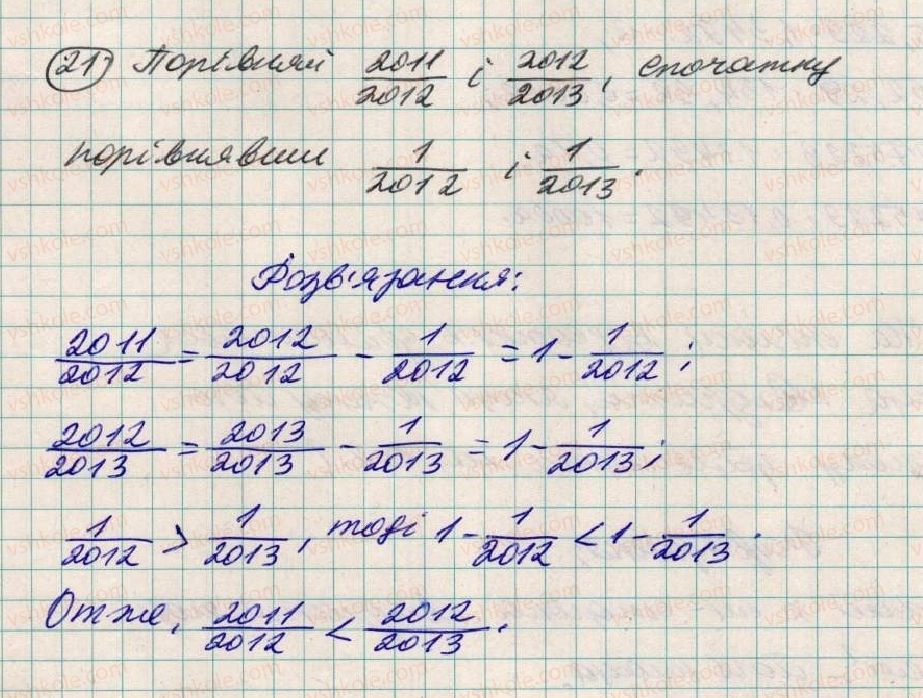 21) Порівняй 2011/2012 і 2012/2013, спочатку
порівнявши 1/2012 і 1/2013.
Розв'язання:
2011/2012 = 2012/2012 - 1/2012 = 1 - 1/2012;
2012/2013 = 2013/2013 - 1/2013 = 1 - 1/2013;
1/2012 > 1/2013, тоді 1 - 1/2012 < 1 - 1/2013.
Отже, 2011/2012 < 2012/2013.